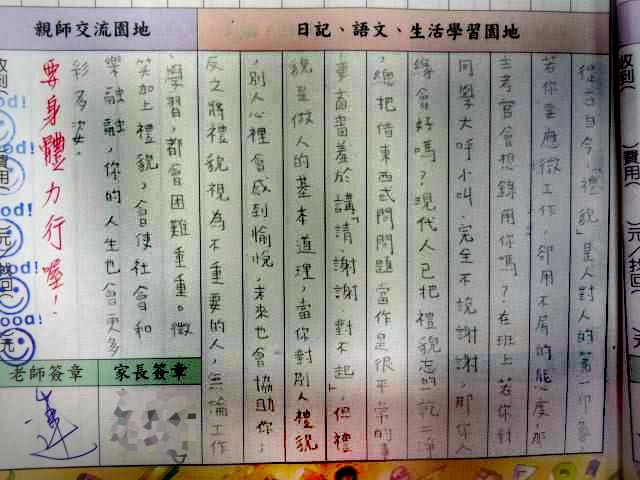 親師交流園地
日記、語文、生活學習園地
從古自今「禮貌」是人對人的第一印象，
若你要應徵工作，卻用不屑的態度，那
主考官會想錄用你嗎？在班上若你對
同學大呼小叫，完全不說謝謝，那你人
緣會好嗎？現代人已把禮貌忘的一乾二淨
，總把借東西或問問題當作是很平常的事
，畜畜羞於講「請、謝謝、對不起」，但禮
貌是做人的基本道理，當你對別人禮貌
，別人心裡會感到愉悅，未來也會協助你；
反之將禮貌視為不重要的人，無論工作
、學習，都會困難重重。微
笑加上禮貌，會使社會和
樂融融，你的人生也會更多
彩多姿。
要身體力行喔！
老師簽章
家長簽章